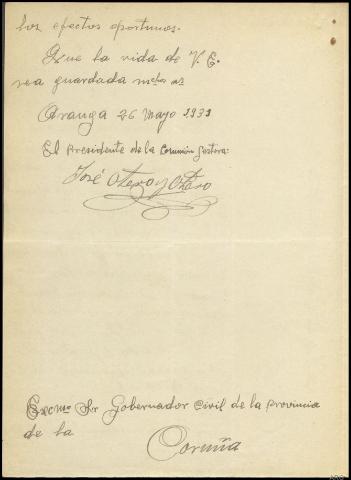 los efectos oportunos.
Que la vida de V. E.
sea guardada mchos as
Aranga 26 Mayo 1931
El Presidente de la Comisión Gestora:
José Otero y Otero
Excmo Sr Gobernador Civil de la Provincia
de la
Coruña